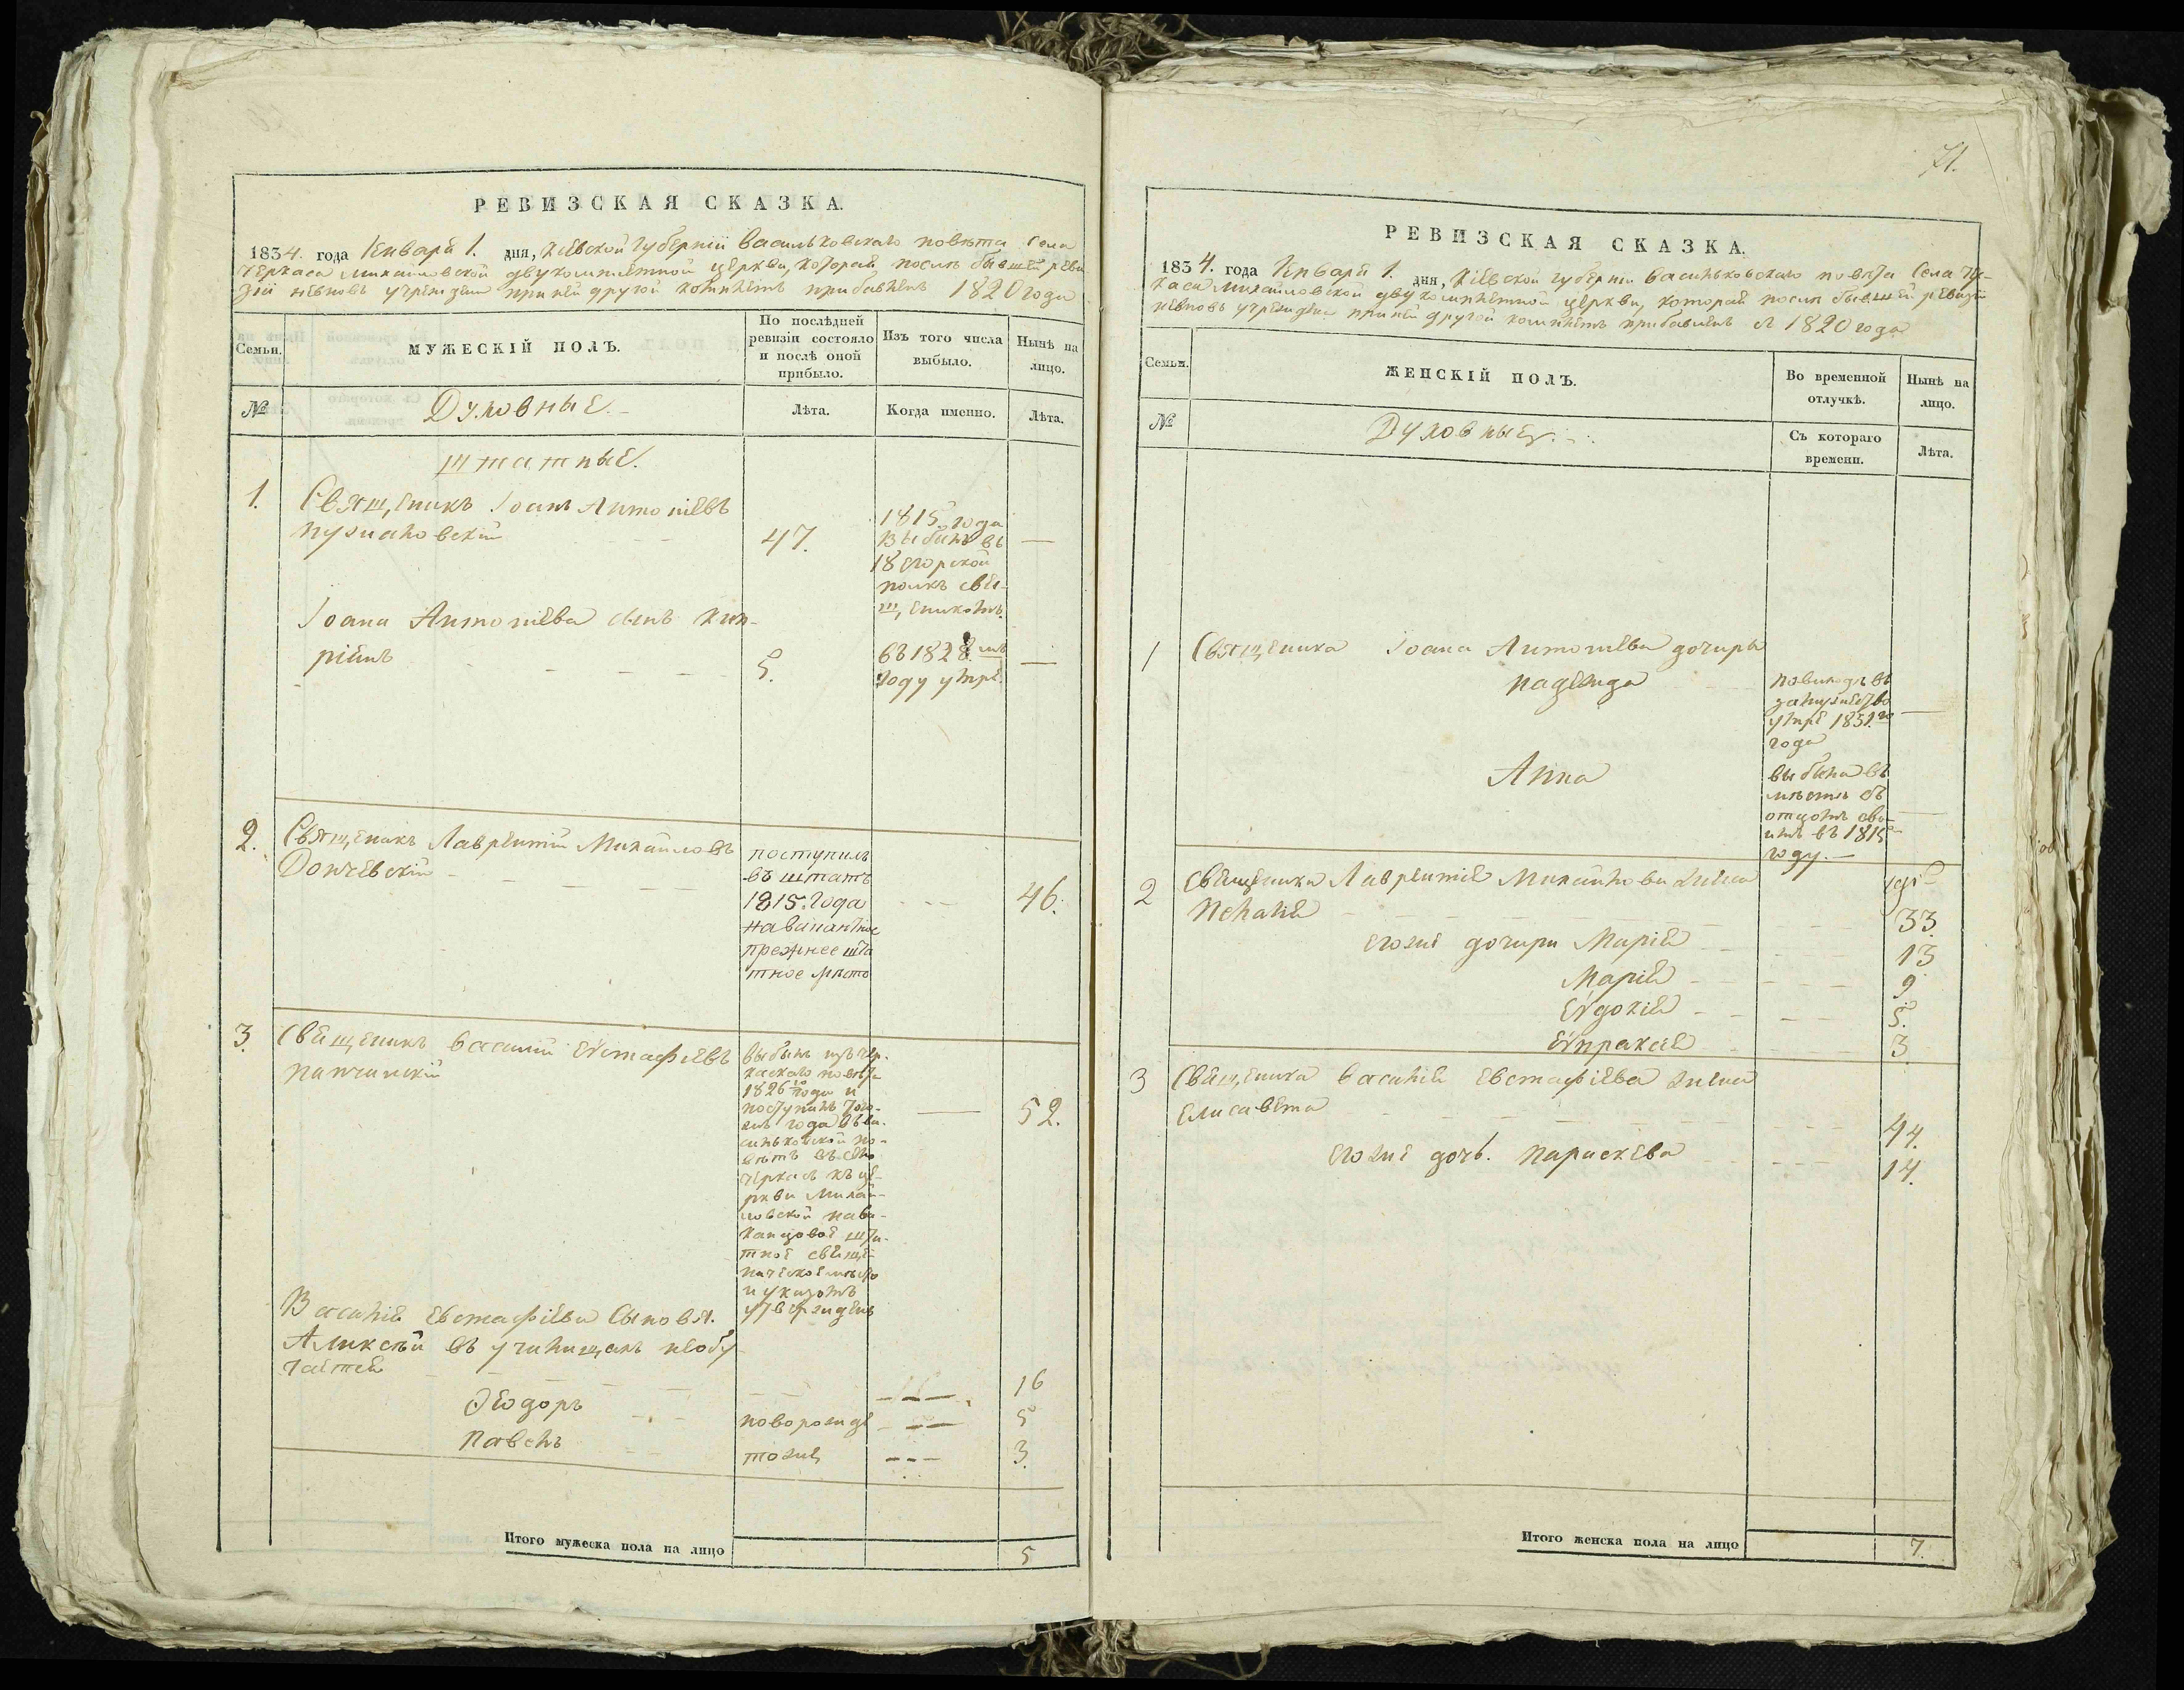 РЕВИЗСКАЯ СКАЗКА.
1834. года Генваря 1. дня, Кіевской Губерніи Васильковскаго повѣта Села
Черкаса Михайловской двухкомплетной церкви, которая послѣ бывшей реви
зіи вновь учреждена при ней другой комплетъ прибавленъ 1820 года
Семьи.
МУЖЕСКІЙ ПОЛЪ.
По послѣдней
ревизіи состояло
и послѣ оной
прибыло.
Изъ того числа
выбыло.
Нынѣ на
лицо.
№
Духовные.
Лѣта.
Когда именно.
Лѣта.
штатные.
1.
Священикъ Іоанъ Антоніевъ
47.
1815 года
выбылъ въ
18 егорской
полкъ свя-
щеникомъ
—
Іоана Антоніева сынъ Кип-
ріянъ
5.
въ 1828мъ
году умре.
—
2.
Священикъ Лаврентій Михайловъ
Дончевскій
поступилъ
въ штатъ
1815. года
на вакантное
прежнее шта
тное место
46.
3.
Священикъ Василій Еѵстафіевъ
выбылъ изъ Чер-
каскаго повѣта
1826го года и
поступилъ того-
жъ года въ Ва-
сильковской по-
вѣтъ въ село
Черкасъ къ це-
ркви Михай-
ловской на ва-
канцовое шта-
тное свяще-
ническое мѣсто
и указомъ
утвержденъ
—
52.
Василія Евстафіева Сыновя.
Аликсѣй въ училищахъ необу
чается
16
Ѳеодоръ
новорожде
5
Павелъ
тоже
3.
Итого мужеска пола на лицо
5
71.
РЕВИЗСКАЯ СКАЗКА.
1834. года Генваря 1. дня, Кіевской Губерніи Васильковскаго повѣта Села Чер-
каса Михайловской двухкомплетной церкви, которая послѣ бывшей ревизіи
вновь учреждена при ней другой комплетъ прибавленъ 1820 года
Семьи.
ЖЕНСКІЙ ПОЛЪ.
Во временной
отлучкѣ.
Нынѣ на
лицо.
№
Духовные.
Съ котораго
времени.
Лѣта.
1
Священика Іоана Антоніева дочиры
Надежда
замужество
умре 1831го
года
—
Анна
выбыла въ
мѣстѣ съ
отцомъ сво-
имъ въ 1815м
году. —
2
Священика Лаврентія Михайлова жена
Пелагія
33.
егоже дочири Марія
13
Марія
9
Еѵдокія
5.
Еѵпраксія
3
3
Священика Василія Евстафіева жена
Елисавета
44.
егоже дочь. Параскева
14.
Итого женска пола на лицо
7.